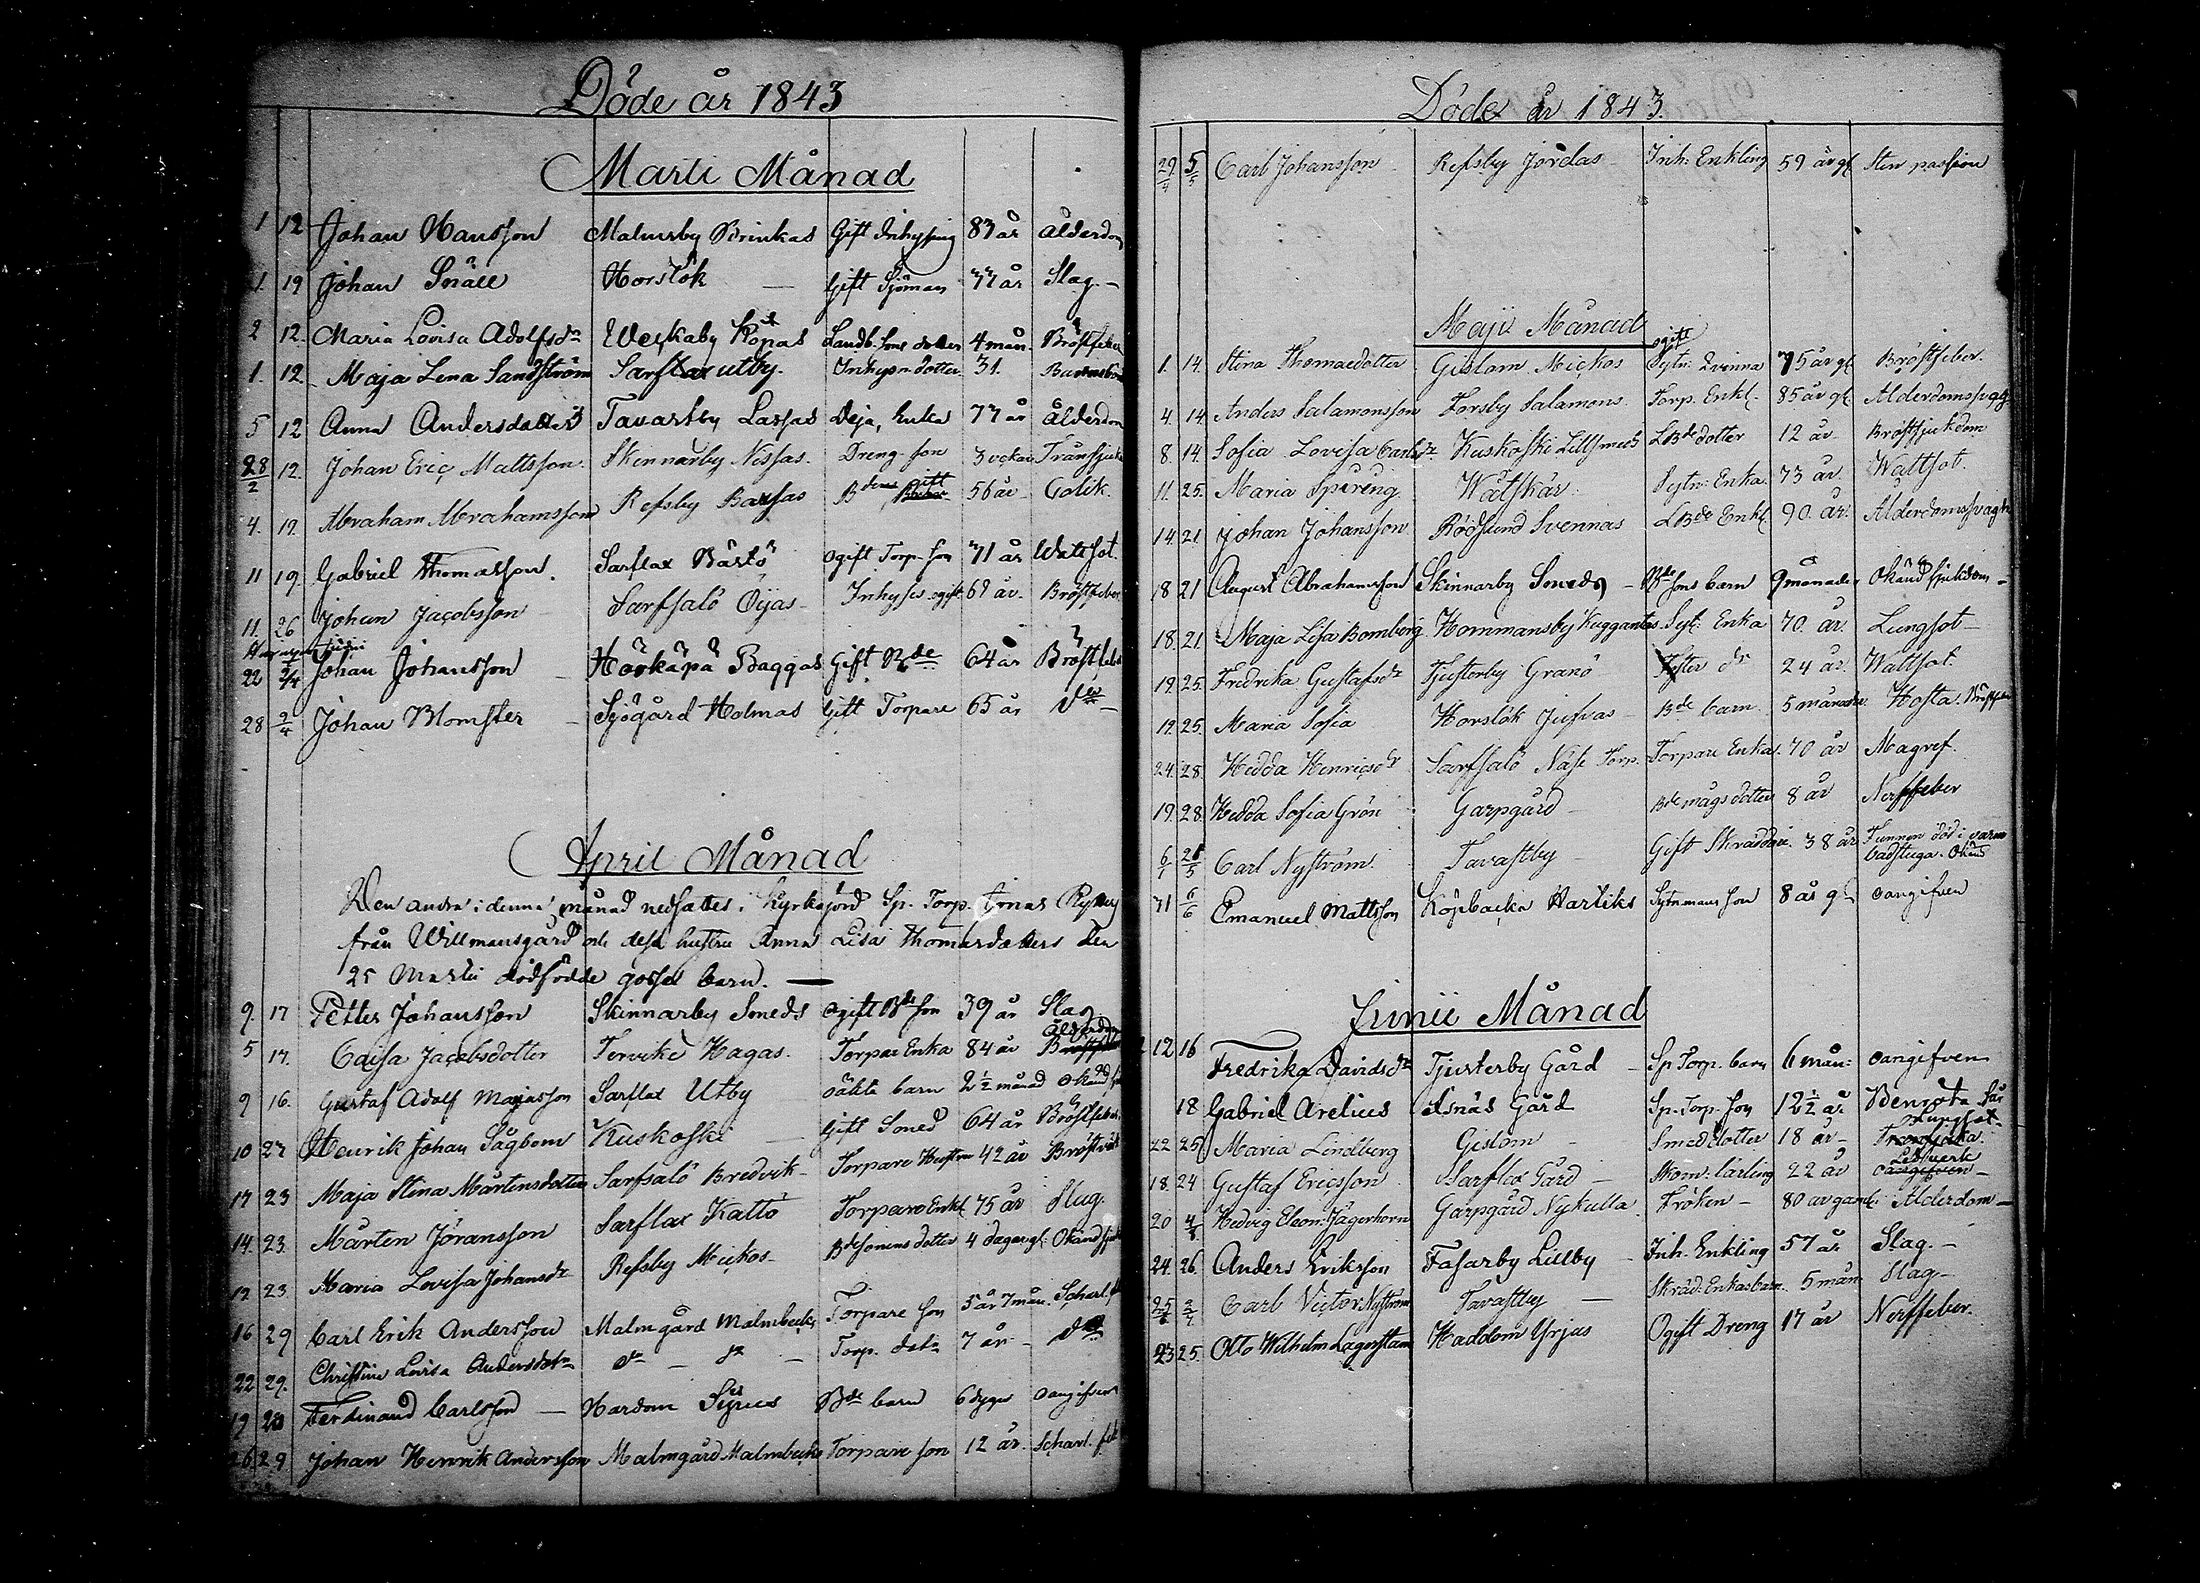 Döde år 1843
Marti Månad
1 12 Johan Hansson Malmsby Brinkas Gift Inhysing 83 år Ålderdom
1. 19 Johan Snäll Horslök — Gift Sjöman 77 år Slag. —
2 12. Maria Lovisa Adolfsdr Weckaby Landb. sons dotter 4 mån. Bröstfeber
1. 12 Maja Lena Sandström Sarflax utby. Inhys:n dotter 31.
5 12 Anna Andersdotter Tavastby Lassas Deja, enka 77 år Ålderdom
28/2 12. Johan Eric Mattsson. Skinnarby Nissas. Dreng son 3 veckor
4. 19. Abraham Abrahamsson Refsby Bassas Bdens gift 56 år Colik.
11 19. Gabriel Thomasson. Sarflax Bästö ogift Torp. son 71 år Wattsot.
11. 26 Johan Jacobsson Sarfsalö Öÿas — Inhyses ogift 69 år. Bröstfeber
22 2/4 Johan Johansson Härkäpä Baggas Gift Bde 64 år Bröstfeb
28 2/4 Johan Blomster — Sjögård Holmas Gift Torpare 65 år do —
April Månad
Den andra i denna månad nedsattes i Kyrkojord Sp. Torp.
från Willmansgård och dess hustru Anna Lisa Thomasdotters den
25 Martii dödfödde gosse barn. —
9. 17 Petter Johansson Skinnarby Smeds ogift Bde son 39 år Slag
5 17. Caisa Jacobsdotter Tervike Hagas. Torpar Enka 84 år Ålderdom
9 16. Gustaf Adolf Majasson Sarflax Utby oäkta barn 2½ månad okänd
10 27 Henrik Johan Sågbom Kuskoski — Gift Smed 64 år Bröstfeber
17 23 Maja Stina Mårtensdotter Sarfsalö Bredvik — Torpare Hustru 42 år
14. 23. Mårten Jöransson Sarflax Kattö Torpare Enkl. 75 år Slag.
12 23. Maria Lovisa Johansdr Refsby Mickos — Bdesonens dotter 4 dagar gl. Okänd sjukd
16 29 Carl Erik Andersson Malmgård Malmbecks Torpare son 5 år 7 mån. Scharl. f
22 29. Christina Lovisa Andersdotr do — do — Torp. dotr 7 år — do
19 28 Ferdinand Carlsson — Hardom Sigries Bde barn 6 dygn oangifven
26 29 Johan Henrik Andersson Malmgård Malmbecks Torpare son 12 år. Scharl. feb
Döde år 1843.
29/4 5/5 Carl Johansson Refsby Jordas — Inh. Enkling 59 år gl. Sten passion
Maji Månad
ogift
1. 14. Stina Thomaedotter Gislom Mickos Sytn. Qvinna 75 år gl. Bröstfeber.
4. 14. Anders Salamonsson Forsby Salamons. Torp. Enkl. 85 år gl. Alderdomssvagh
8. 14. Sofia Lovisa Carlsdr Kuskoski Lillsmeds LBde dotter 12 år. Bröstsjukdom
11. 25. Maria Spiring Wätskär. Sytn. Enka 73 år. Wattsot.
14. 21. Johan Johansson Rödsund Svennas LBde Enkl. 90. år. Alderdomssvagh
18 21 August Abrahamsson Skinnarby Smeds — Bde sons barn 9 månader Okänd sjukdom —
18. 21. Maja Lisa Bomberg Hommansby Kuggantas Syt. Enka 70. år. Lungsot —
19. 25. Fredrika Gustafsdr Tjusterby Granö dr 24 år. Wattsot.
19. 25. Maria Sofia Horslök Jusvas — Bde barn. 5 månader. Hosta. Bröstfeber
24. 28. Hedda Henricsdr Sarfsalö Näse Torp. Torpare Enka. 70 år Magref.
19. 28. Hedda Sofia Grön Garpgård — Bde mågs dotter 8 år Nerffeber
6/5 Carl Nyström. Tavastby — Gift Skräddare. 38 år Funnen död i varm
badstuga. Okänd
31 6/6 Emanuel Mattsson Köpbacka Hartiks Sytnmans son 8 år gl oangifven
Junii Månad
12 16 Fredrika Davidsdr Tjusterby Gård — Sp. Torp. barn 6 mån: oangifven
18 Gabriel Arelius Isnäs Gård Sp. Torp. son 12½ år Benröta
Lungsot.
22 25. Maria Lindberg Gislom — Smed dotter 18 år —
18. 24 Gustaf Ericsson Sarflax Gård — Skom. lärling 22 år oangifven —
20 Hedvig Eleon: Jägerhorn Garpgård Nykulla. Fröken — 80 år gaml. Ålderdom —
24. 26. Anders Eriksson Fasarby Lillby — Inh. Enkling 57 år Slag. —
25/6 2/7 Carl Victor Nyström Tavastby — Skräd. Enkas barn. 5 mån Slag —
23 25. Otto Wilhelm Lagerstam Haddom Yrjas Ogift Dreng 17 år Nerffeber.